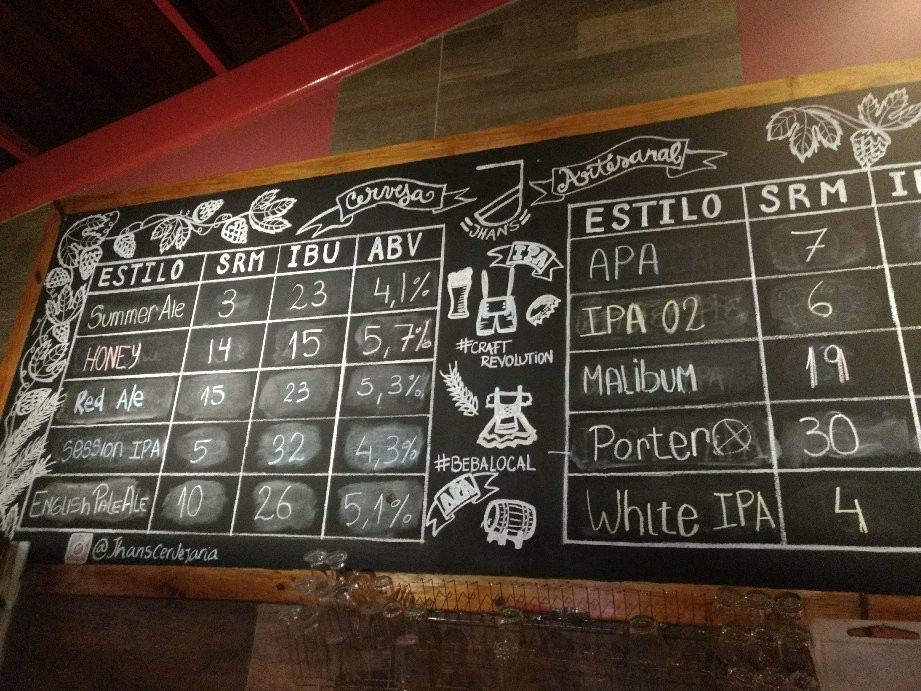 Cerveja
JHANS
Artesanal
ESTILO SRM IBU ABV
Summer Ale 3 23 4,1%
HONEY 14 15 5,7%
Red Ale 15 23 5,3%
Session IPA 5 32 4,3%
English Pale Ale 10 26 5,1%
@Jhanscervejaria
IPA
#CRAFT
REVOLUTION
#BEBALOCAL
APA
ESTILO SRM
APA 7
IPA 02 6
MALIBUM 19
Porter 30
White IPA 4